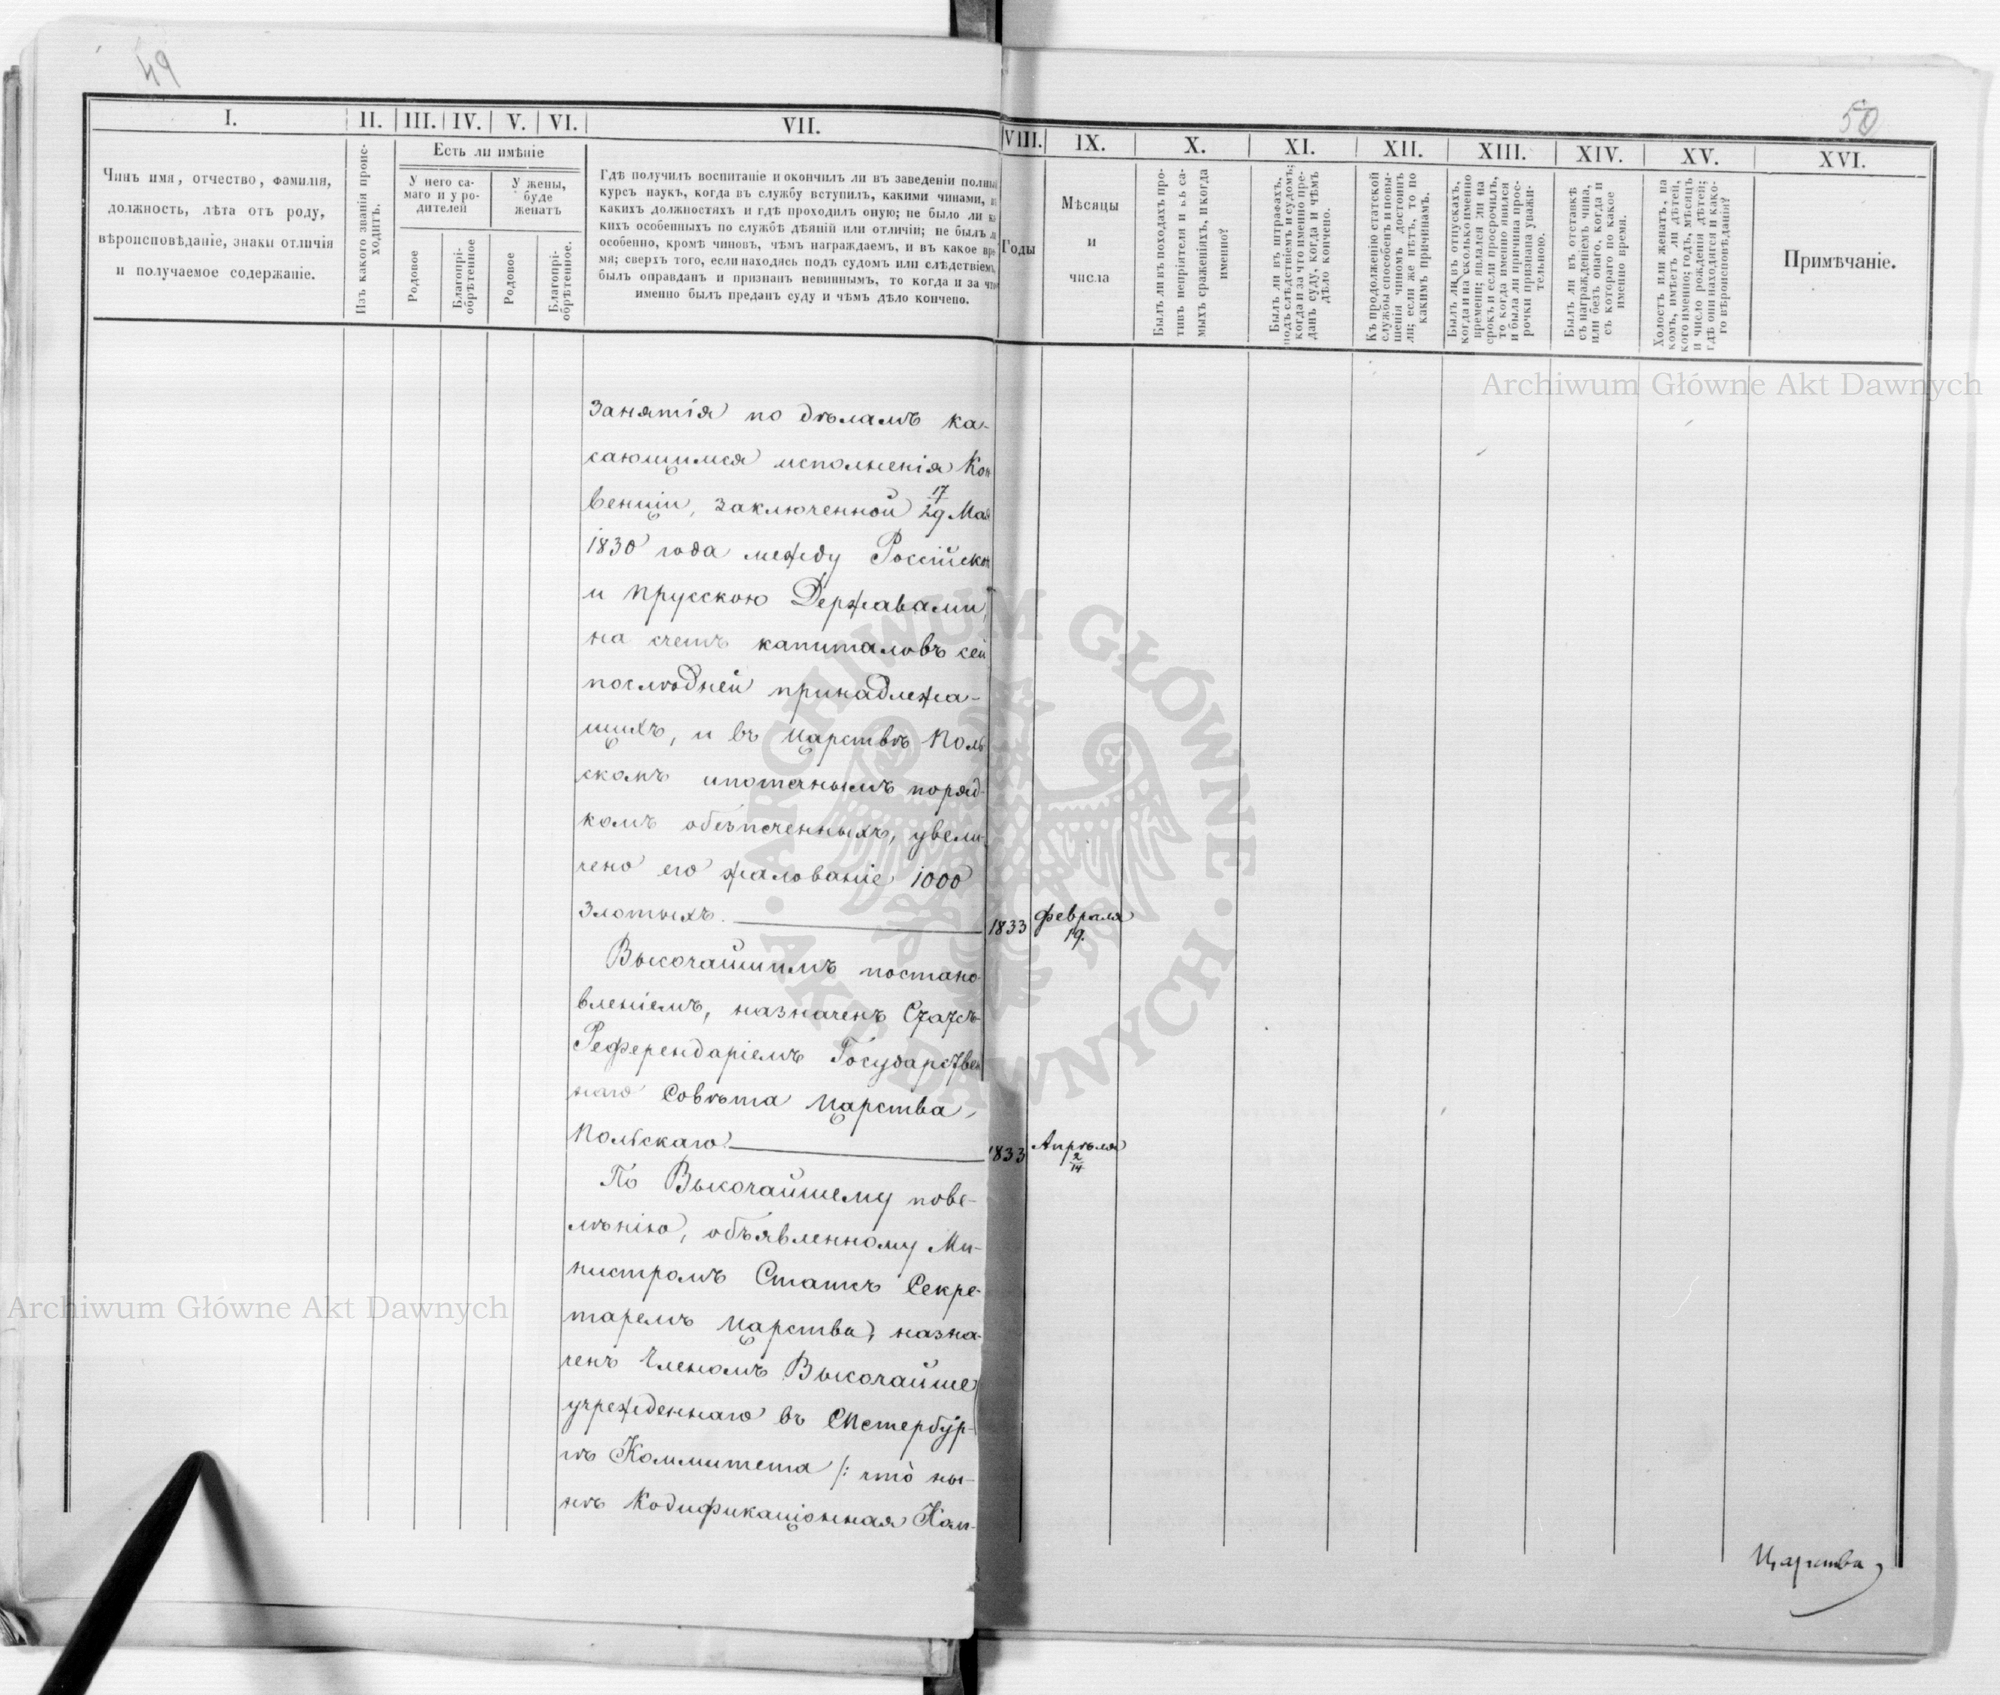 49
50
I.
II.
III.
IV.
V.
VI.
VII.
VIII.
IX.
X.
XI.
XII.
XIII.
XIV.
XV.
XVI.
Чинъ имя, отчество, фамилія,
должность, лѣта отъ роду,
вѣроисповѣданіе, знаки отличія
и получаемое содержаніе.
Изъ какого званія проис-
ходитъ.
Есть ли имѣніе
У него са-
маго и у ро-
дителей
У жены,
буде
женатъ
Родовое
Благопрі-
обрѣтенное
Родовое
Благопрі-
обрѣтенное.
Гдѣ получилъ воспитаніе и окончилъ ли въ заведеніи полный
курсъ наукъ, когда въ службу вступилъ, какими чинами, въ
какихъ должностяхъ и гдѣ проходилъ оную; не было ли ка
кихъ особенныхъ по службѣ дѣяній или отличіи; не былъ ли
особенно, кромѣ чиновъ, чѣмъ награждаемъ, и въ какое вре
мя; сверхъ того, если находясь подъ судомъ или слѣдствіемъ,
былъ оправданъ и признанъ невиннымъ, то когда и за что
именно былъ преданъ суду и чѣмъ дѣло кончено.
Годы
Мѣсяцы
и
числа
Былъ ли въ походахъ про-
тивъ непріятеля и въ са-
мыхъ сраженіяхъ, и когда
именно?
Былъ ли въ штрафахъ,
подъ слѣдствіемъ и судомъ;
когда и за что именно пре-
данъ суду, когда и чѣмъ
дѣло кончено.
Къ продолженію статской
службы способенъ и повы-
шенія чиномъ достоинъ
ли; если же нѣтъ, то по
какимъ причинамъ.
Былъ ли въ отпускахъ,
когда и на сколько именно
времени; явился ли на
срокъ и если просрочилъ,
то когда именно явился
и была ли причина прос-
рочки признана уважи-
тельною.
Былъ ли въ отставкѣ
съ награжденіемъ чина,
или безъ онаго, когда и
съ котораго по какое
именно время.
Холостъ или женатъ, на
комъ, имѣетъ ли дѣтей,
кого именно; годъ, мѣсяцъ
и число рожденія дѣтей;
гдѣ они находятся и како-
го вѣроисповѣданія?
Примѣчаніе.
занятія по дѣламъ ка-
сающимся исполненія Кон
венціи, заключенной 17/29 Мая
1830 года между Россійскою
и Прусскою Державами,
на счетъ капиталовъ сей
послѣдней принадлежа-
щихъ, и въ Царствѣ Поль
скомъ ипотечнымъ поряд-
комъ обезпеченныхъ, увели-
чено его жалованіе 1000
злотыхъ.
1833 Февраля
19.
Высочайшимъ постано
вленіемъ, назначенъ Статсъ-
Референдаріемъ Государствен
наго Совѣта Царства
Польскаго.
1833 Апрѣля
2/14
По Высочайшему пове-
лѣнію, объявленному Ми-
нистромъ Статсъ Секре-
таремъ Царства, назна-
ченъ Членомъ Высочайше
учрежденнаго въ СПетербур-
гѣ Коммитета /: что ны-
нѣ Кодификаціонная Ком-
Царства
Archiwum Główne Akt Dawnych
Archiwum Główne Akt Dawnych
ARCHIWUM GŁÓWNE · AKT DAWNYCH ·